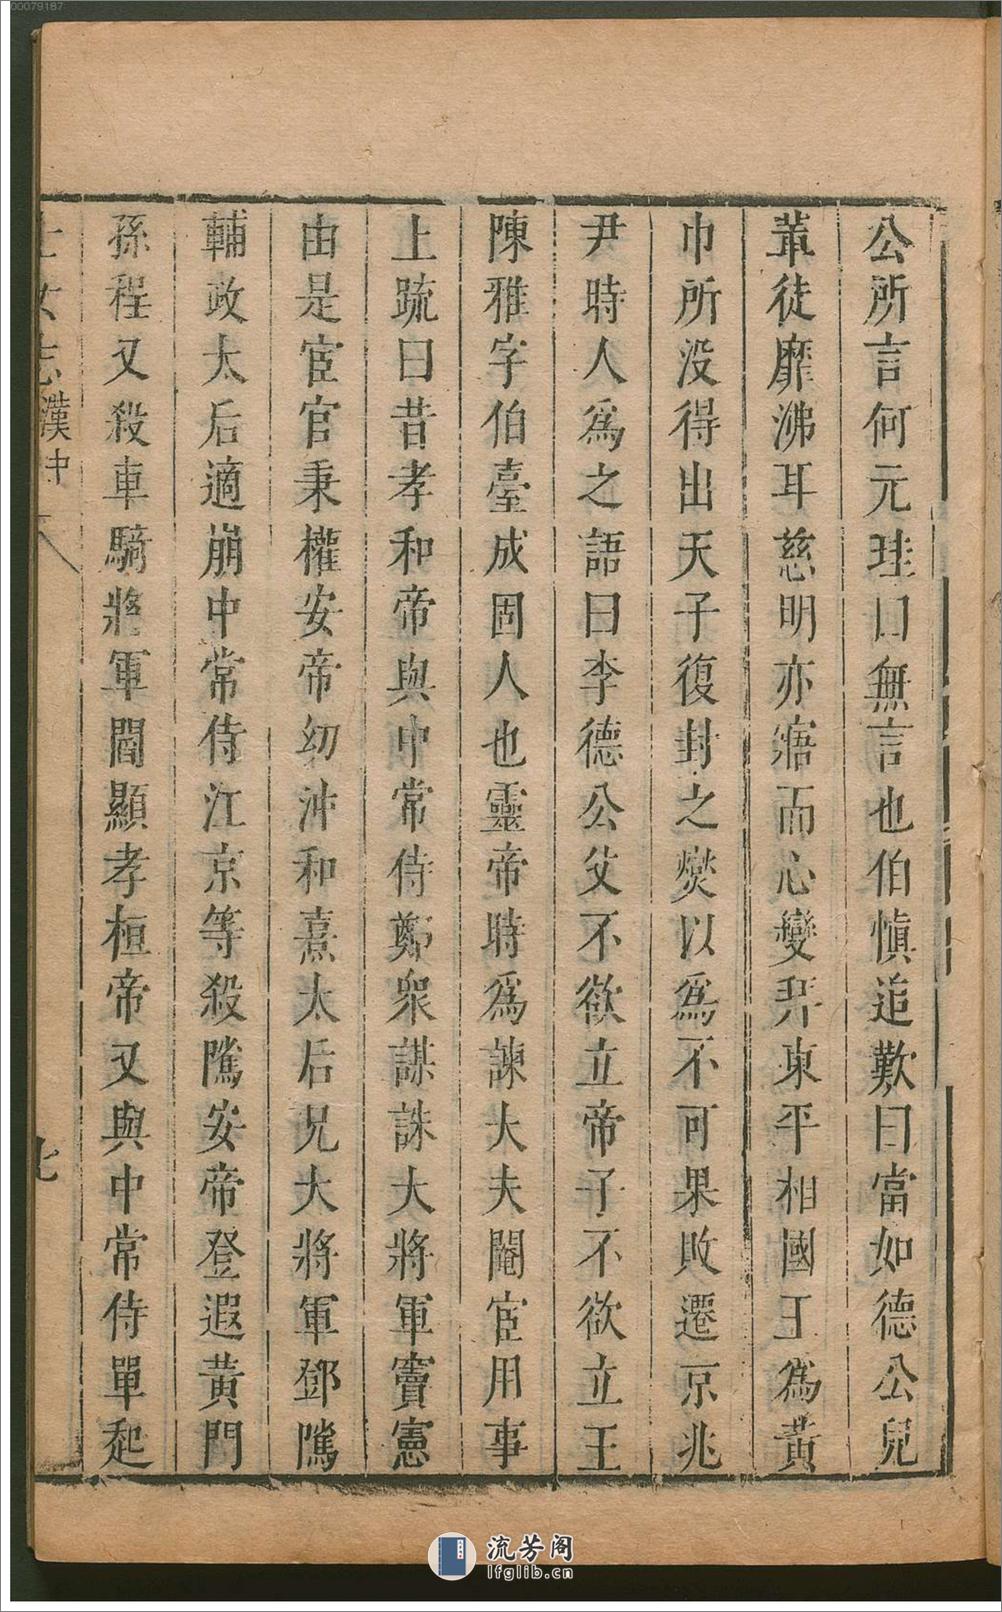 公所言何元珪曰無言也伯愼追歎曰當如德公兒
輩徒靡沸耳慈明亦寤而心變拜東平相國王爲黃
巾所没得出天子復封之爕以爲不可果敗遷京兆
尹時人爲之語曰李德公父不欲立帝子不欲立王
陳雅字伯臺成固人也靈帝時爲諫大夫閹宦用事
上疏曰昔孝和帝與中常侍鄭衆謀誅大將軍竇憲
由是宦官秉權安帝幼沖和熹太后兄大將軍鄧隲
輔政太后適崩中常侍江京等殺隲安帝登遐黃門
孫程又殺車騎將軍閻顯孝桓帝又與中常侍單起
士女志 漢中
七
00079187
流芳阁
lfglib.cn